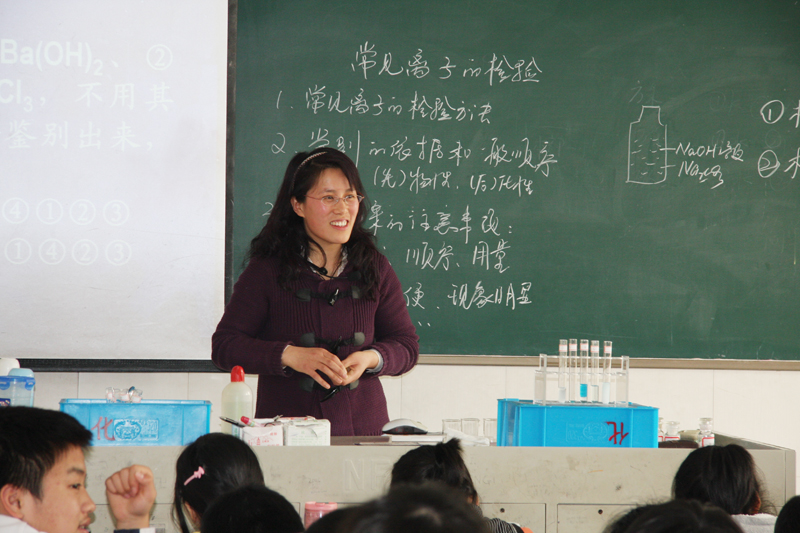 Ba(OH)₂、 ②
Cl₃， 不用其
鉴别出来，
④①③
①④②③
常见离子的检验
1. 常见离子的检验方法
2. 鉴别的依据和一般顺序
(先)物性、(后)化性
的注意事项:
顺序、用量
便、现象明显
NaOH溶液
Na₂CO₃
①
②
化
化